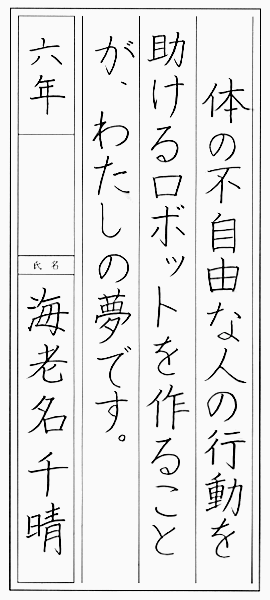 体の不自由な人の行動を
助けるロボットを作ること
が、わたしの夢です。
六年
氏名
海老名千晴